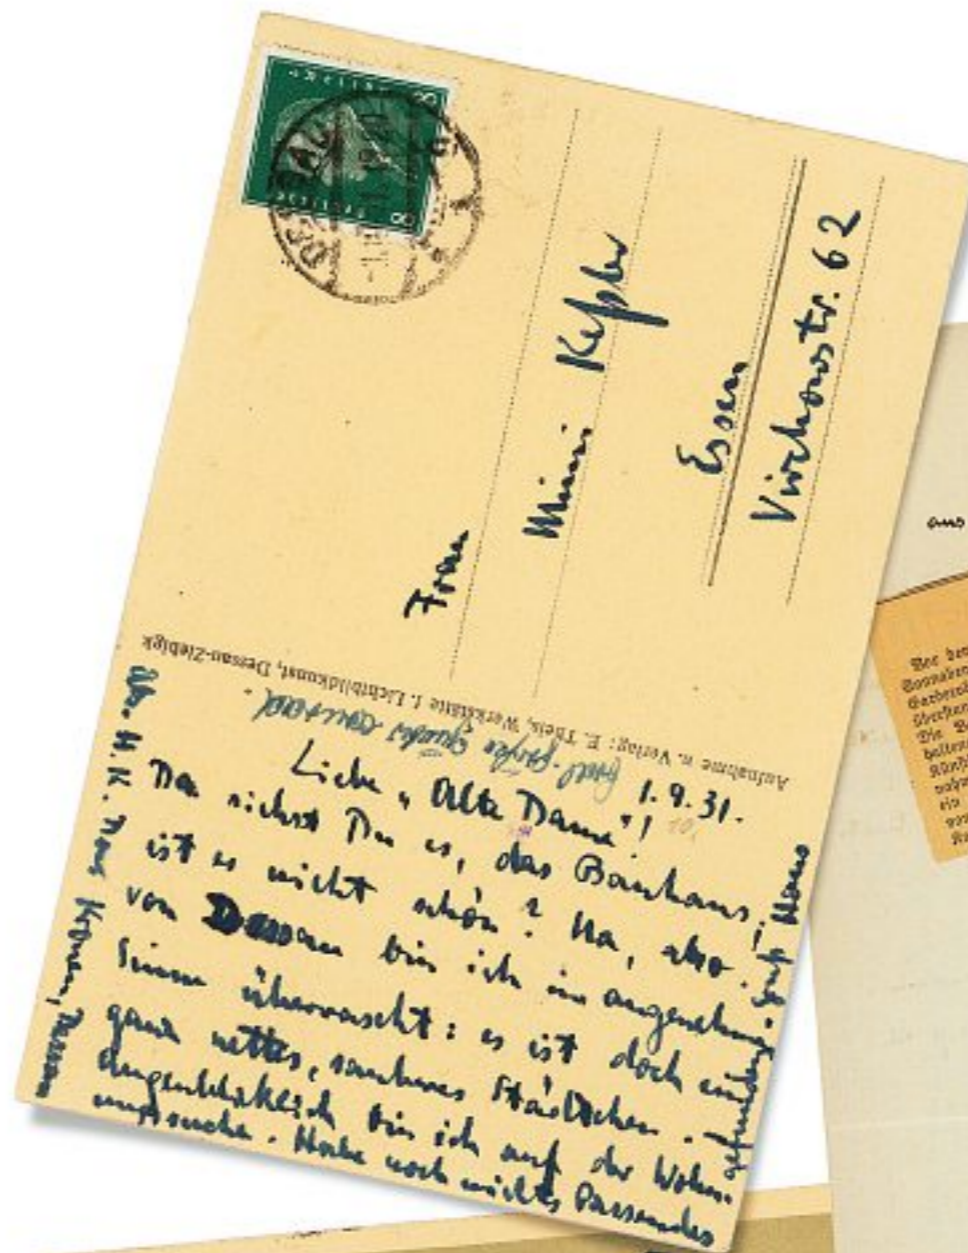 DESSAU
8
8
Frau
Mimi Keßler
Essen
Virchowstr. 62
Aufnahme u. Verlag: E. Theis, Werkstätte f. Lichtbildkunst, Dessau-Ziebigk
1.9.31.
Liebe "Alte Dame"!
Da siehst Du es, das Bauhaus,
ist es nicht schön? Na, also.
von Dessau bin ich im angenehmen
Sinne überrascht: es ist doch ein
ganz nettes, sauberes Städtchen.
Augenblicklich bin ich auf der Wohn-
ungssuche. Habe noch nichts Passendes
gefunden. Hans
Abs. H.K.
Dessau
aus
Vor
Die
ein